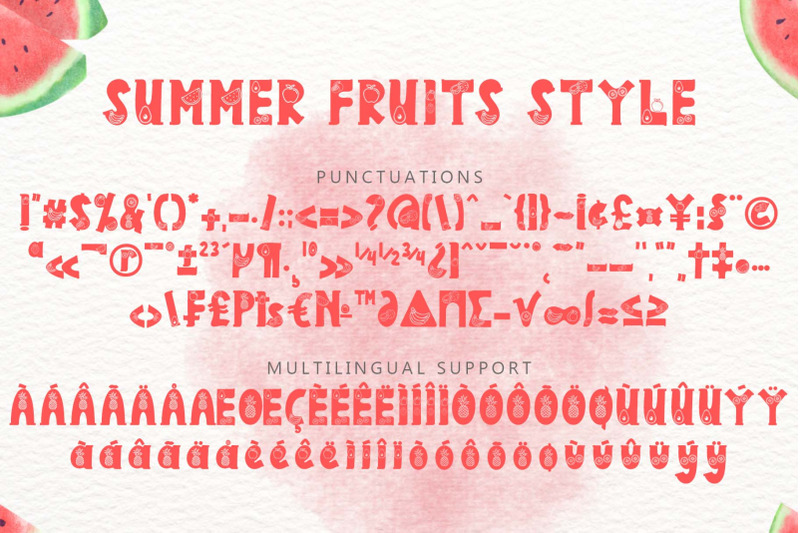 SUMMER FRUITS STYLE
PUNCTUATIONS
!"#$%&'()*+,-./:;<=>?@[\]^_`{|}~¡¢£¤¥¦§¨©
ª«¬¯®¯°±²³´µ¶·¸¹º»¼½¾¿ı
‹›⁄₣₤₧€№™∂∆∏∑−√∞∫≈≤≥
MULTILINGUAL SUPPORT
ÀÁÂÃÄÅÆŒÇÈÉÊËÌÍÎÏÒÓÔÕÖØÙÚÛÜÝŸ
àáâãäåèéêëìíîïòóôõöøùúûüýÿ